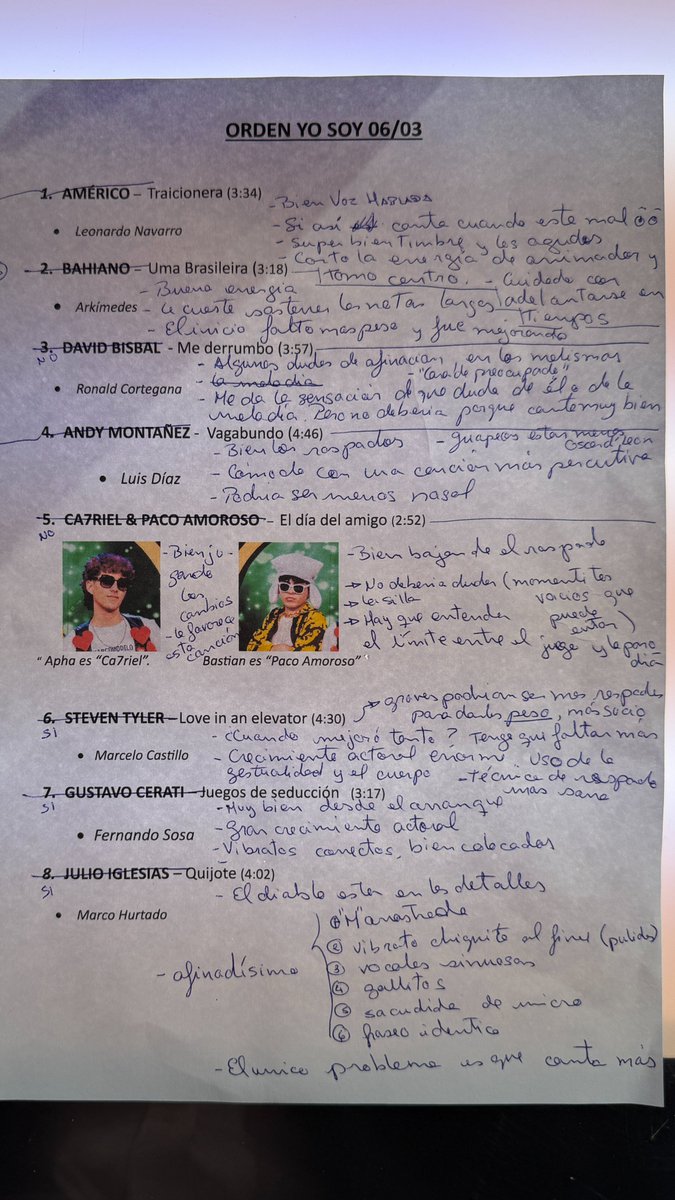 ORDEN YO SOY 06/03
1. AMÉRICO – Traicionera (3:34)
- Bien Voz HABLADA
• Leonardo Navarro
- Si así canta cuando este mal
- super bien Timbre y los agudos
- Corto la energía de animador y
2. BAHIANO – Uma Brasileira (3:18)
tomo centro. - Cuidado con
- Buena energía
• Arkímedes
- le cuesta sostener las notas largas
adelantarse en
Tiempos
- El inicio falto mas peso y fue mejorando
3. DAVID BISBAL - Me derrumbo (3:57)
NO
- Algunas dudas de afinacion en los melismas
- la melodia
- "Cara de preocupado"
• Ronald Cortegana
- Me da la sensación de que duda de él o de la
melodía. Pero no debería porque canta muy bien
4. ANDY MONTAÑEZ - Vagabundo (4:46)
- Bien los raspados
- guapeos estan menos
Oscar d'Leon
• Luis Díaz
- Cómodo con una canción más percutiva
- Podria ser menos nasal
5. CA7RIEL & PACO AMOROSO – El día del amigo (2:52)
NO
- Bien ju-
gando
los
cambios
- le favorece
esta
canción
- Bien bajan de el raspado
→ No deberia dudar (momentitos
vacios que
puede
entrar)
→ la silla
→ Hay que entender
el límite entre el juego y la paro
dia
" Apha es "Ca7riel".
"Bastian es "Paco Amoroso"
6. STEVEN TYLER – Love in an elevator (4:30)
SI
→ graves podrian ser mas raspados
para darles peso, más sucio
- ¿Cuando mejoró tanto? Tengo que faltar mas
• Marcelo Castillo
- Crecimiento actoral enorme. Uso de la
gestualidad y el cuerpo
- Técnica de raspado
mas sana
7. GUSTAVO CERATI – Juegos de seducción (3:17)
SI
- Muy bien desde el arranque
• Fernando Sosa
- Gran crecimiento actoral
- Vibratos correctos, bien colocados
8. JULIO IGLESIAS – Quijote (4:02)
SI
- El diablo esta en los detalles
• Marco Hurtado
- afinadísimo
① "M" arrastrada
② vibrato chiquito al final (pulido)
③ vocales sinuosas
④ gallitos
⑤ sacudida de micro
⑥ fraseo identico
- El unico problema es que canta más